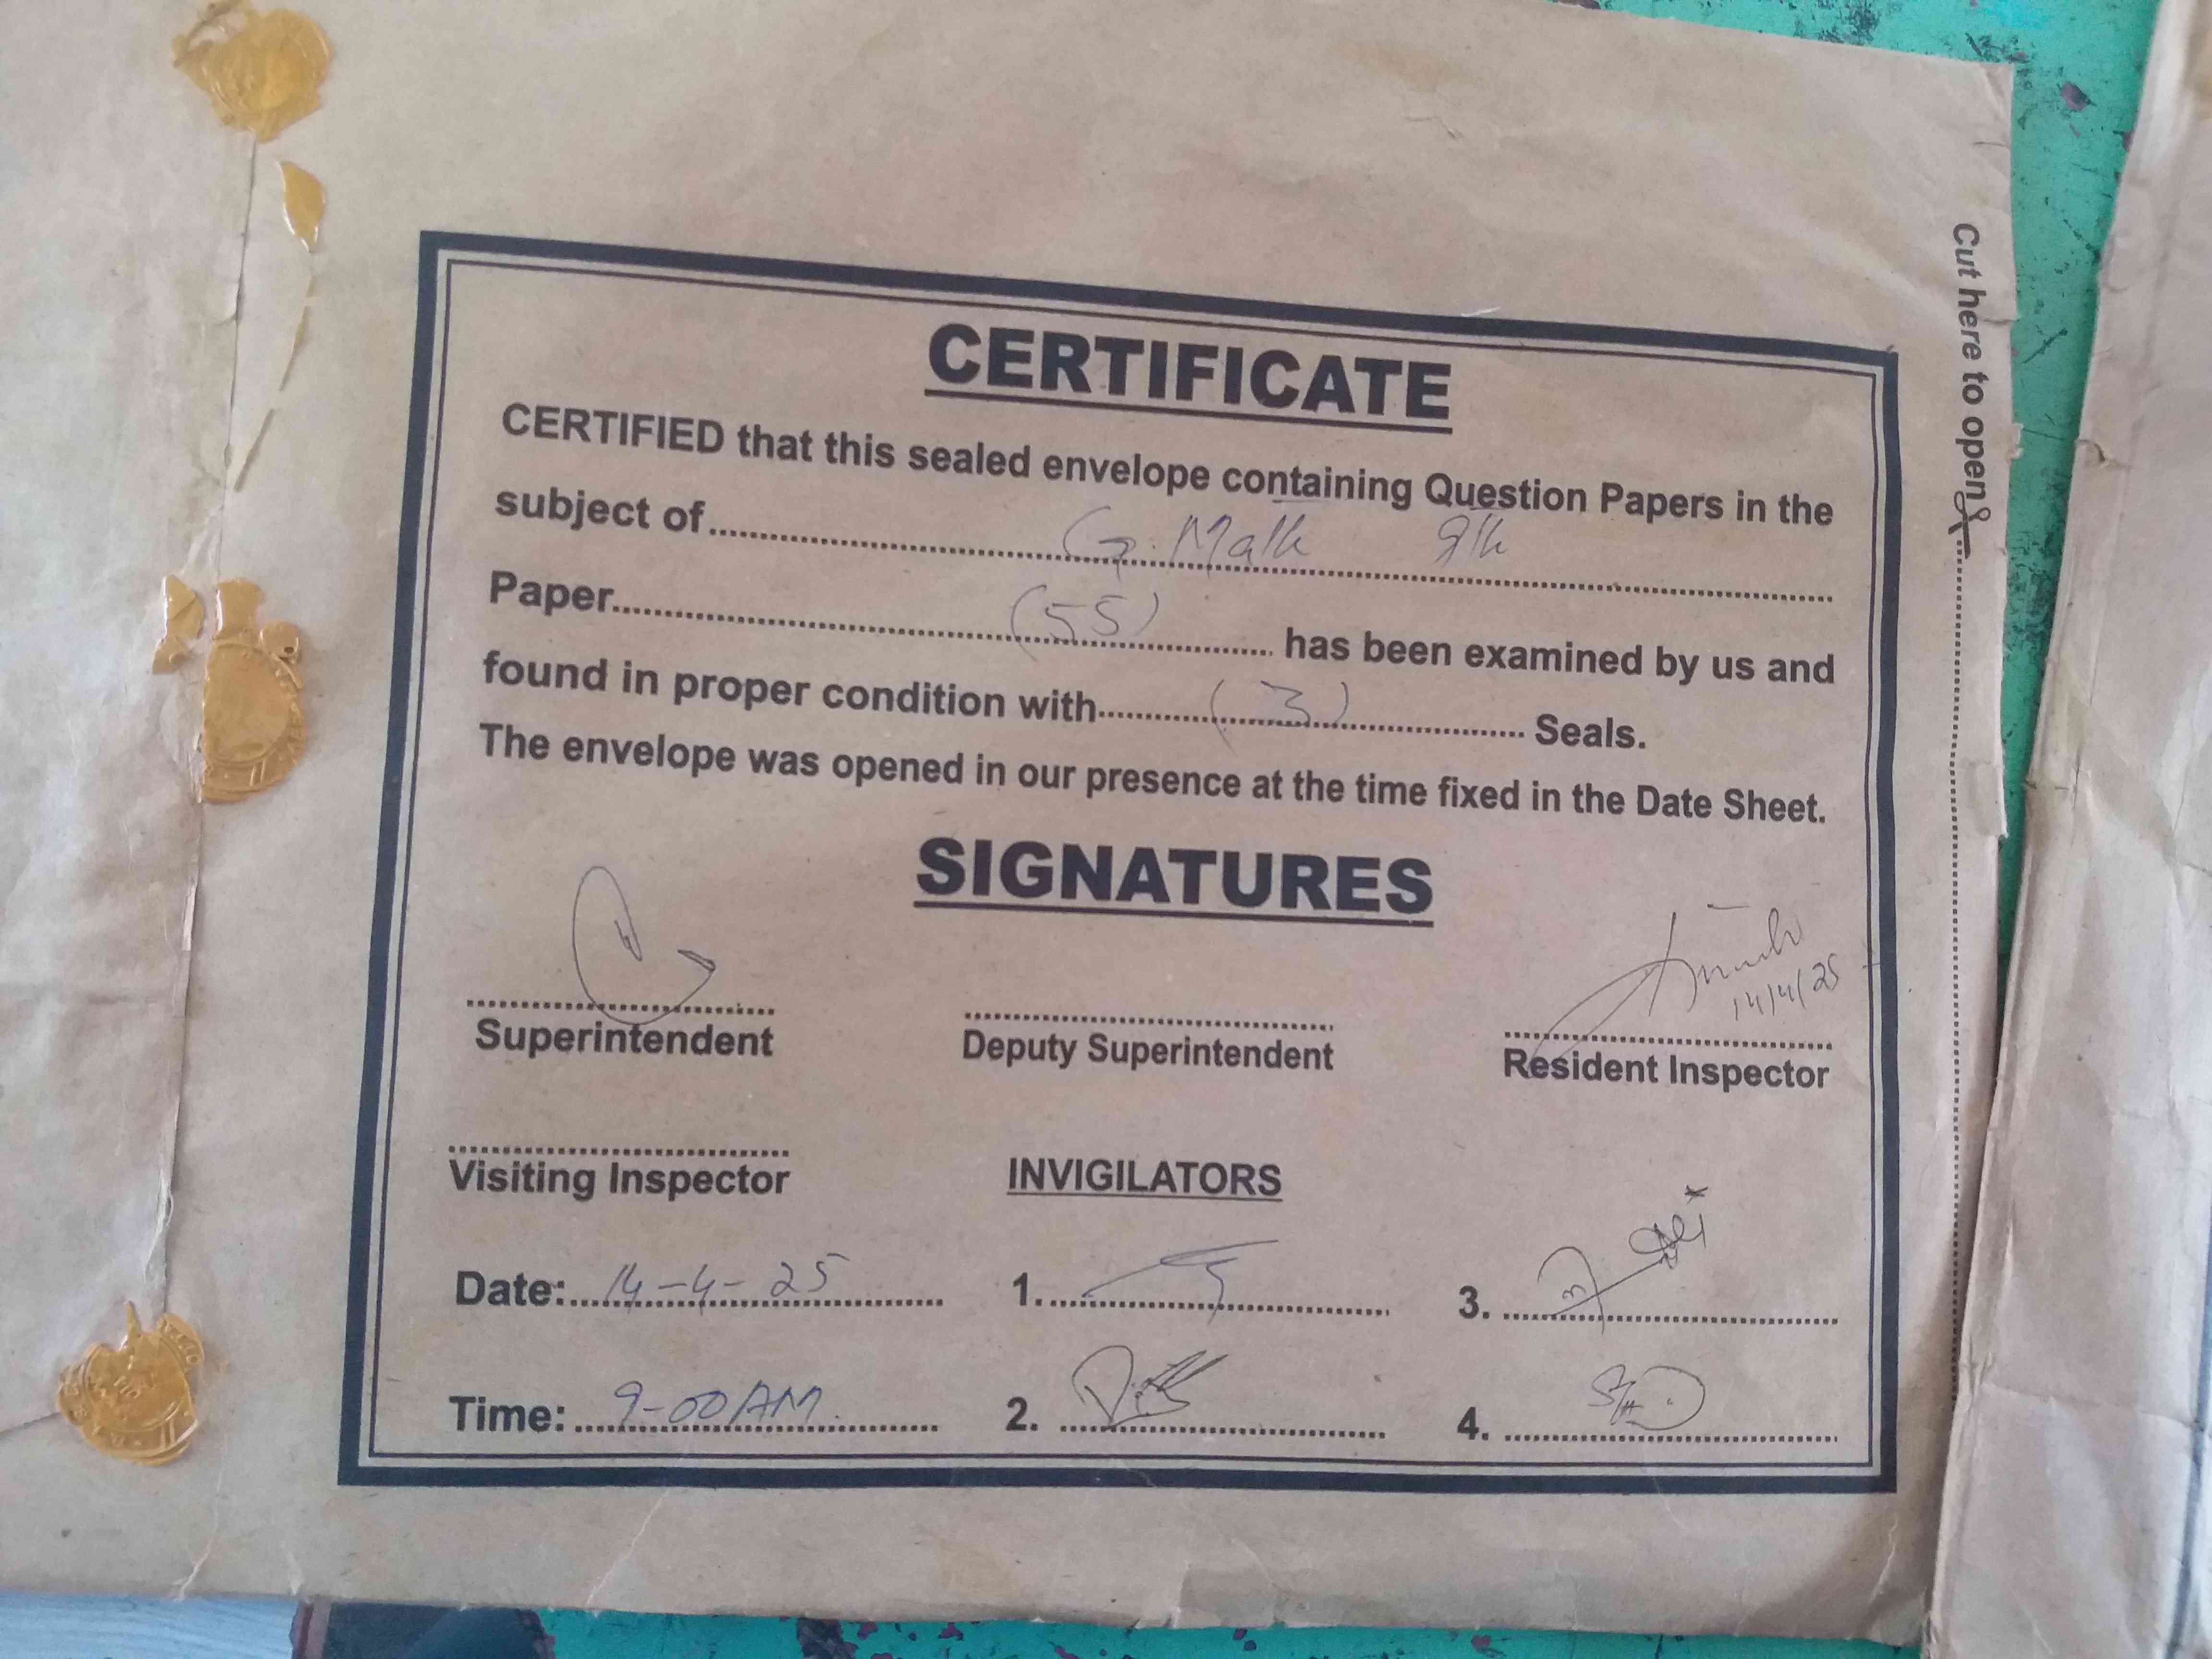 CERTIFICATE
CERTIFIED that this sealed envelope containing Question Papers in the
subject of G. Math 9th
Paper (55) has been examined by us and
found in proper condition with (3) Seals.
The envelope was opened in our presence at the time fixed in the Date Sheet.
SIGNATURES
14/4/25
Superintendent Deputy Superintendent Resident Inspector
Visiting Inspector INVIGILATORS
Date: 14-4-25 1. 3.
Time: 9-00 AM 2. 4.
Cut here to open